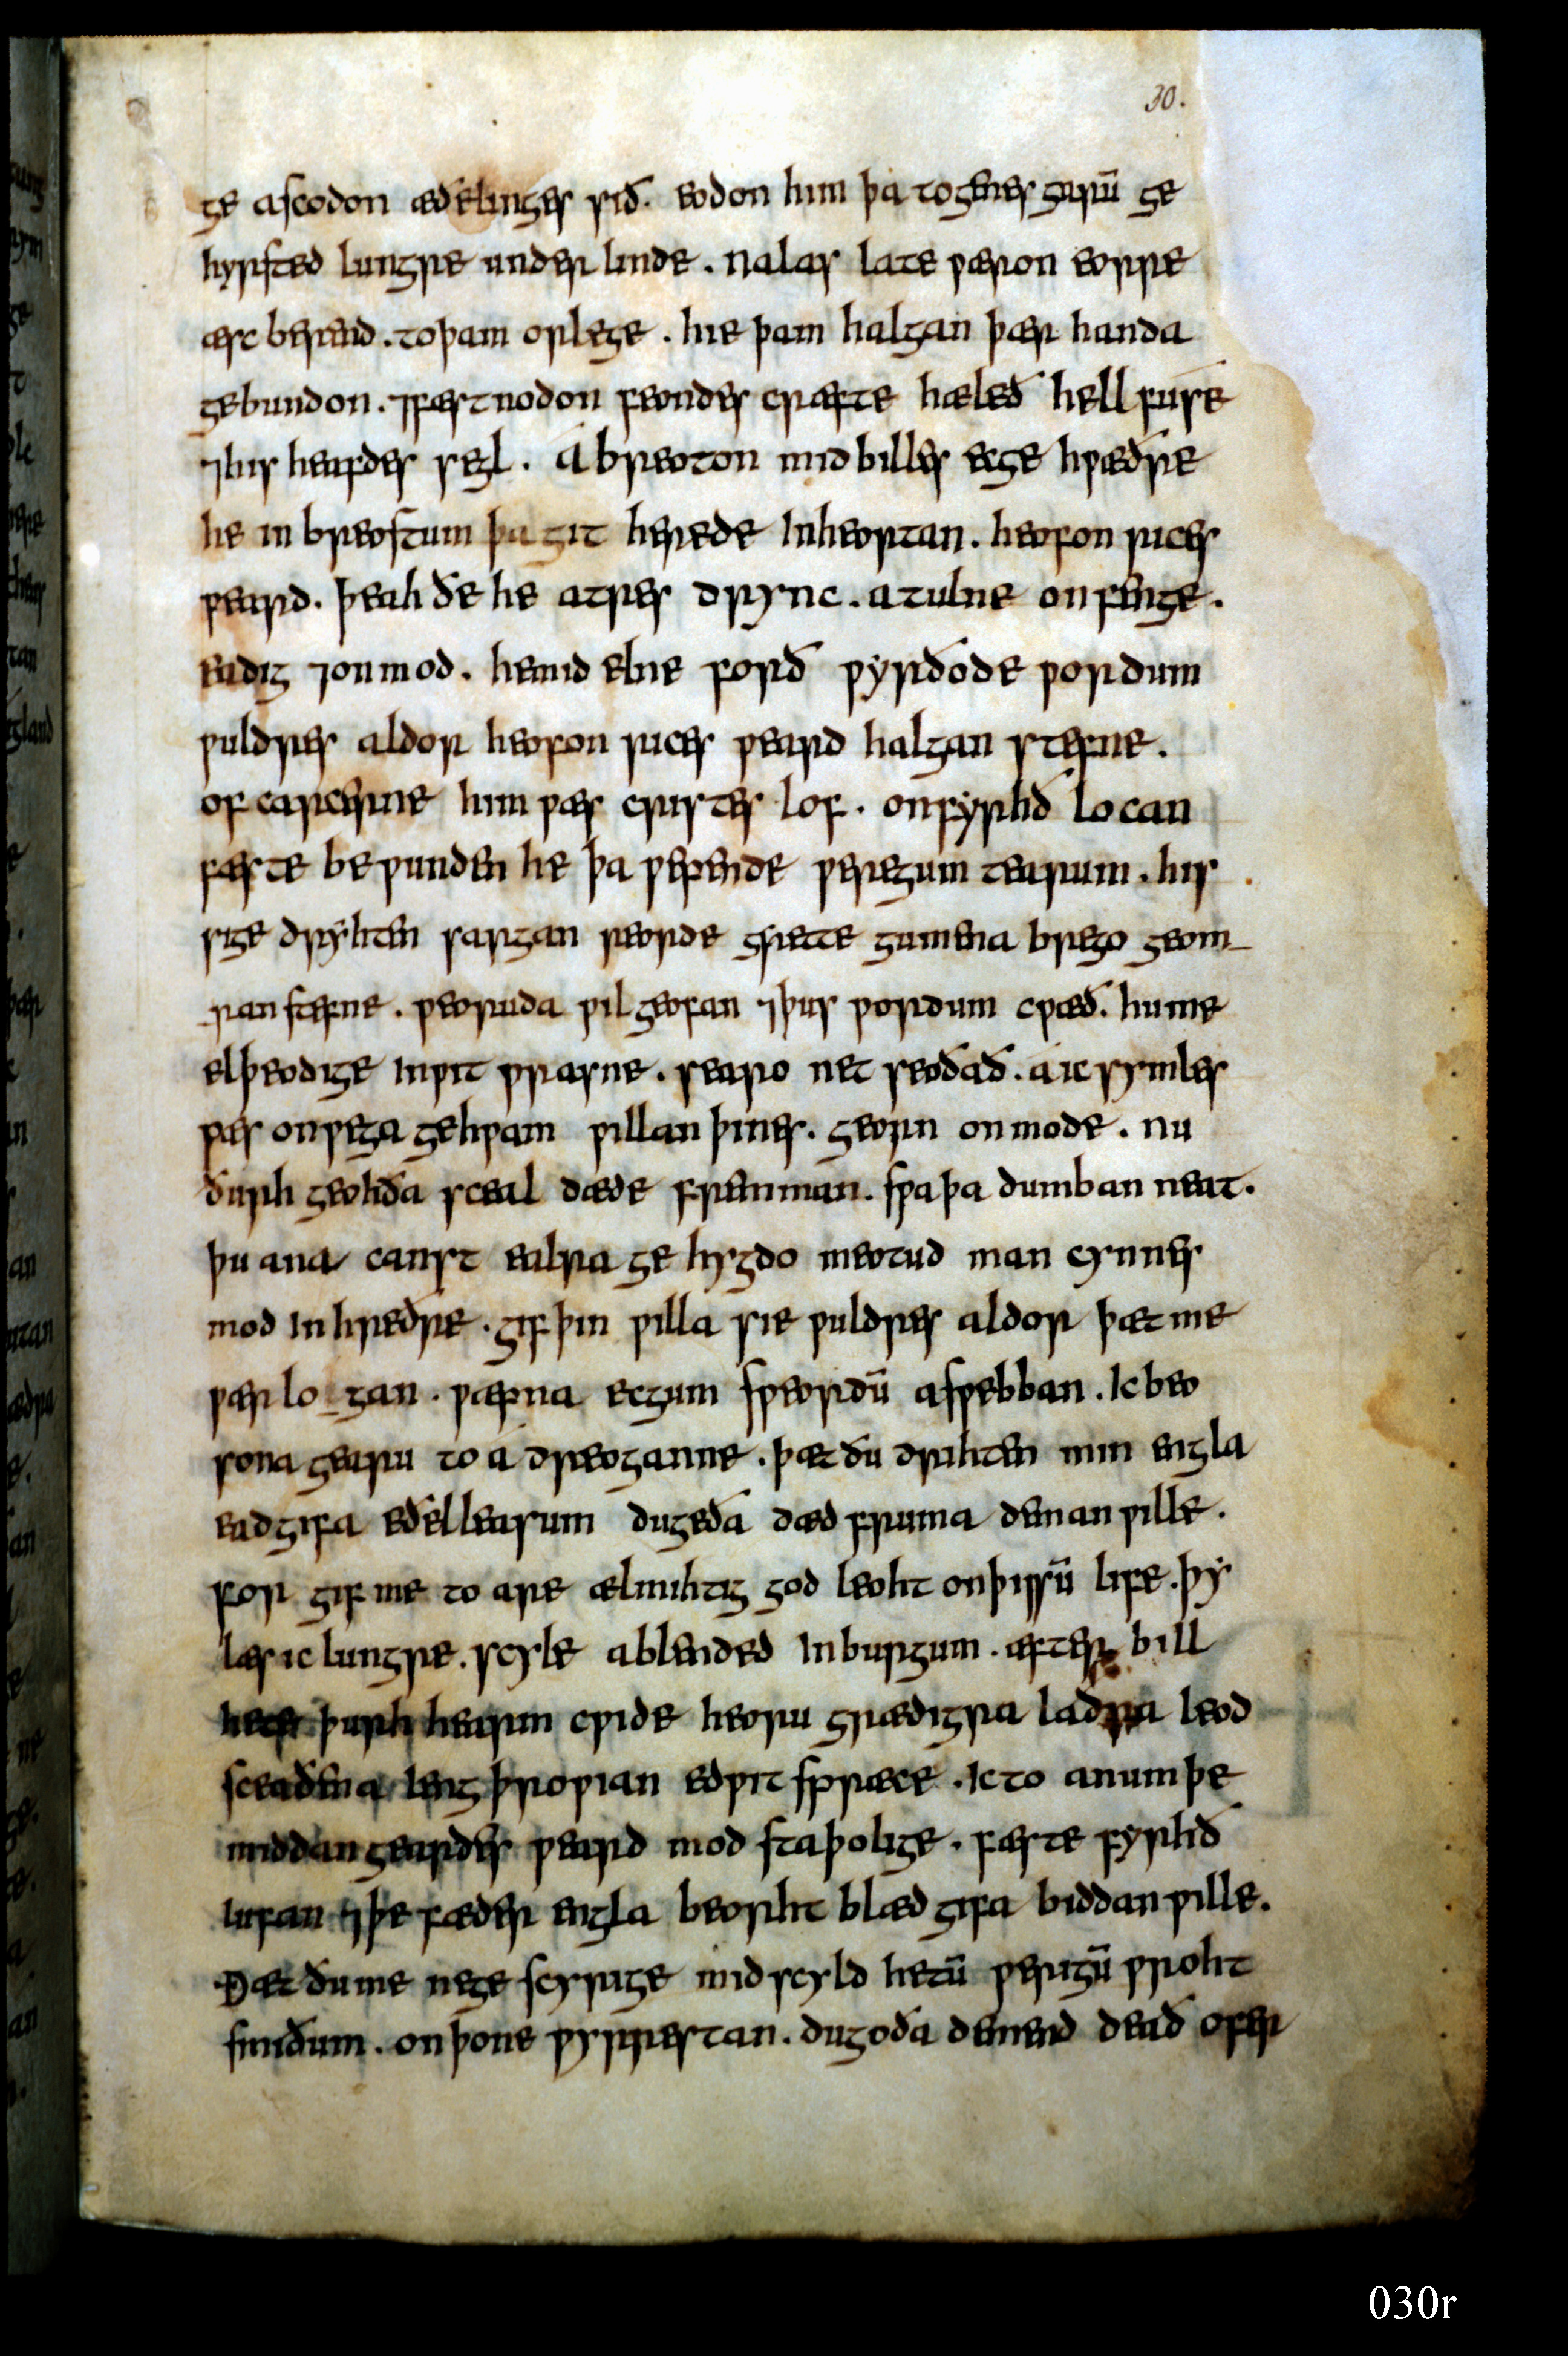 30.
ge ascodon æðelinges sið. eodon him þa togenes garū ge
hyrsted lungre under linde. nalas late ƿæron eorre
æsc berend. toþam orlege. hie þam halgan þær handa
gebundon. ⁊fæstnodon feondes cræfte hæleð hellfuse
⁊his heafdes segl. abreoton mid billes ecge hƿæðre
he in breostum þa git herede Inheortan. heofon rices
ƿeard. þeah ðe he atres drync. atulne onfenge.
eadig ⁊onmod. hemid elne forð ƿyrðode ƿordum
ƿuldres aldor heofon rices ƿeard halgan stefne.
of carcerne him ƿæs cristes lof. onfyrhð locan
fæste beƿunden he þa ƿepende ƿeregum tearum. his
sige dryhten sargan reorde grette gumena brego geom
ran stefne. ƿeoruda ƿilgeofan ⁊þus ƿordum cƿæð. hu me
elþeodige Inƿit ƿrasne. searo net seoðað. a ic symles
ƿæs onƿega gehƿam ƿillan þines. georn onmode. nu
ðurh geohða sceal dæde fremman. sƿa þa dumban neat.
þu ana canst ealra ge hygdo meotud man cynnes
mod Inhreðre. gif þin ƿilla sie ƿuldres aldor þæt me
ƿærlogan. ƿæpna ecgum sƿeordū asƿebban. Ic beo
sona gearu to adreoganne. þæt ðu drihten min engla
eadgifa eðelleasum dugeða dæd fruma deman ƿille.
for gif me to are ælmihtig god leoht onþissū life. þy
læs ic lungre. scyle ablended Inburgum. æfter bill
hete þurh hearm cƿide heoru grædigra laðra leod
sceaðena leng þroƿian edƿit spræce. Ic to anum þe
middangeardes ƿeard mod staþolige. fæste fyrhð
lufan ⁊þe fæder engla beorht blæd gifa biddan ƿille.
Ðæt ðu me nege scyrige mid scyld hetū ƿerigū ƿroht
smiðum. onþone ƿyrrestan. dugoða demend deað ofer
030r